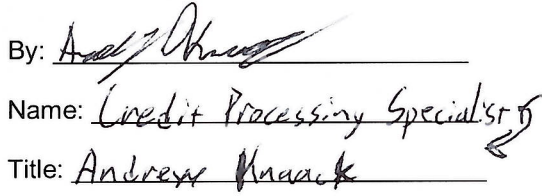 By:
Name: Credit Processing Specialist
Title: Andrew Knaack